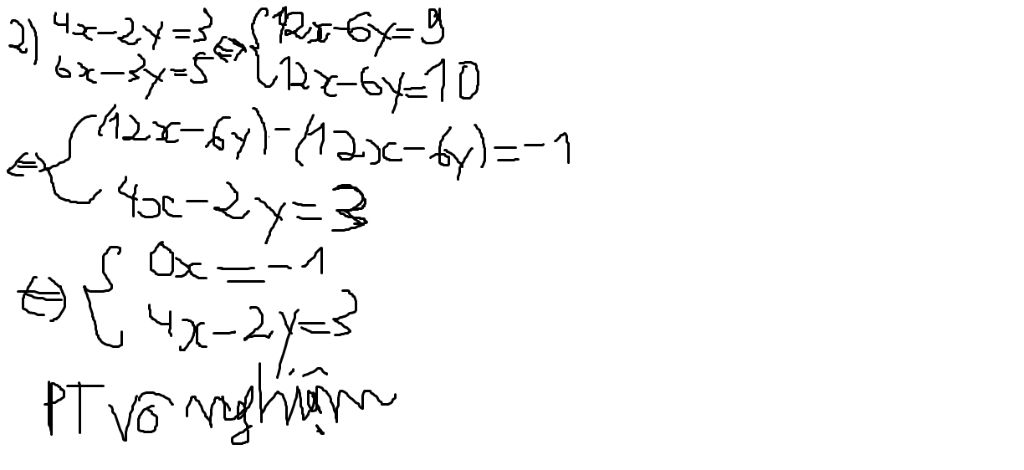 2) 4x-2y=3 ⇔ { 12x-6y=9
6x-3y=5 12x-6y=10
⇔ { (12x-6y)-(12x-6y)=-1
4x-2y=3
⇔ { 0x=-1
4x-2y=3
PT vô nghiệm